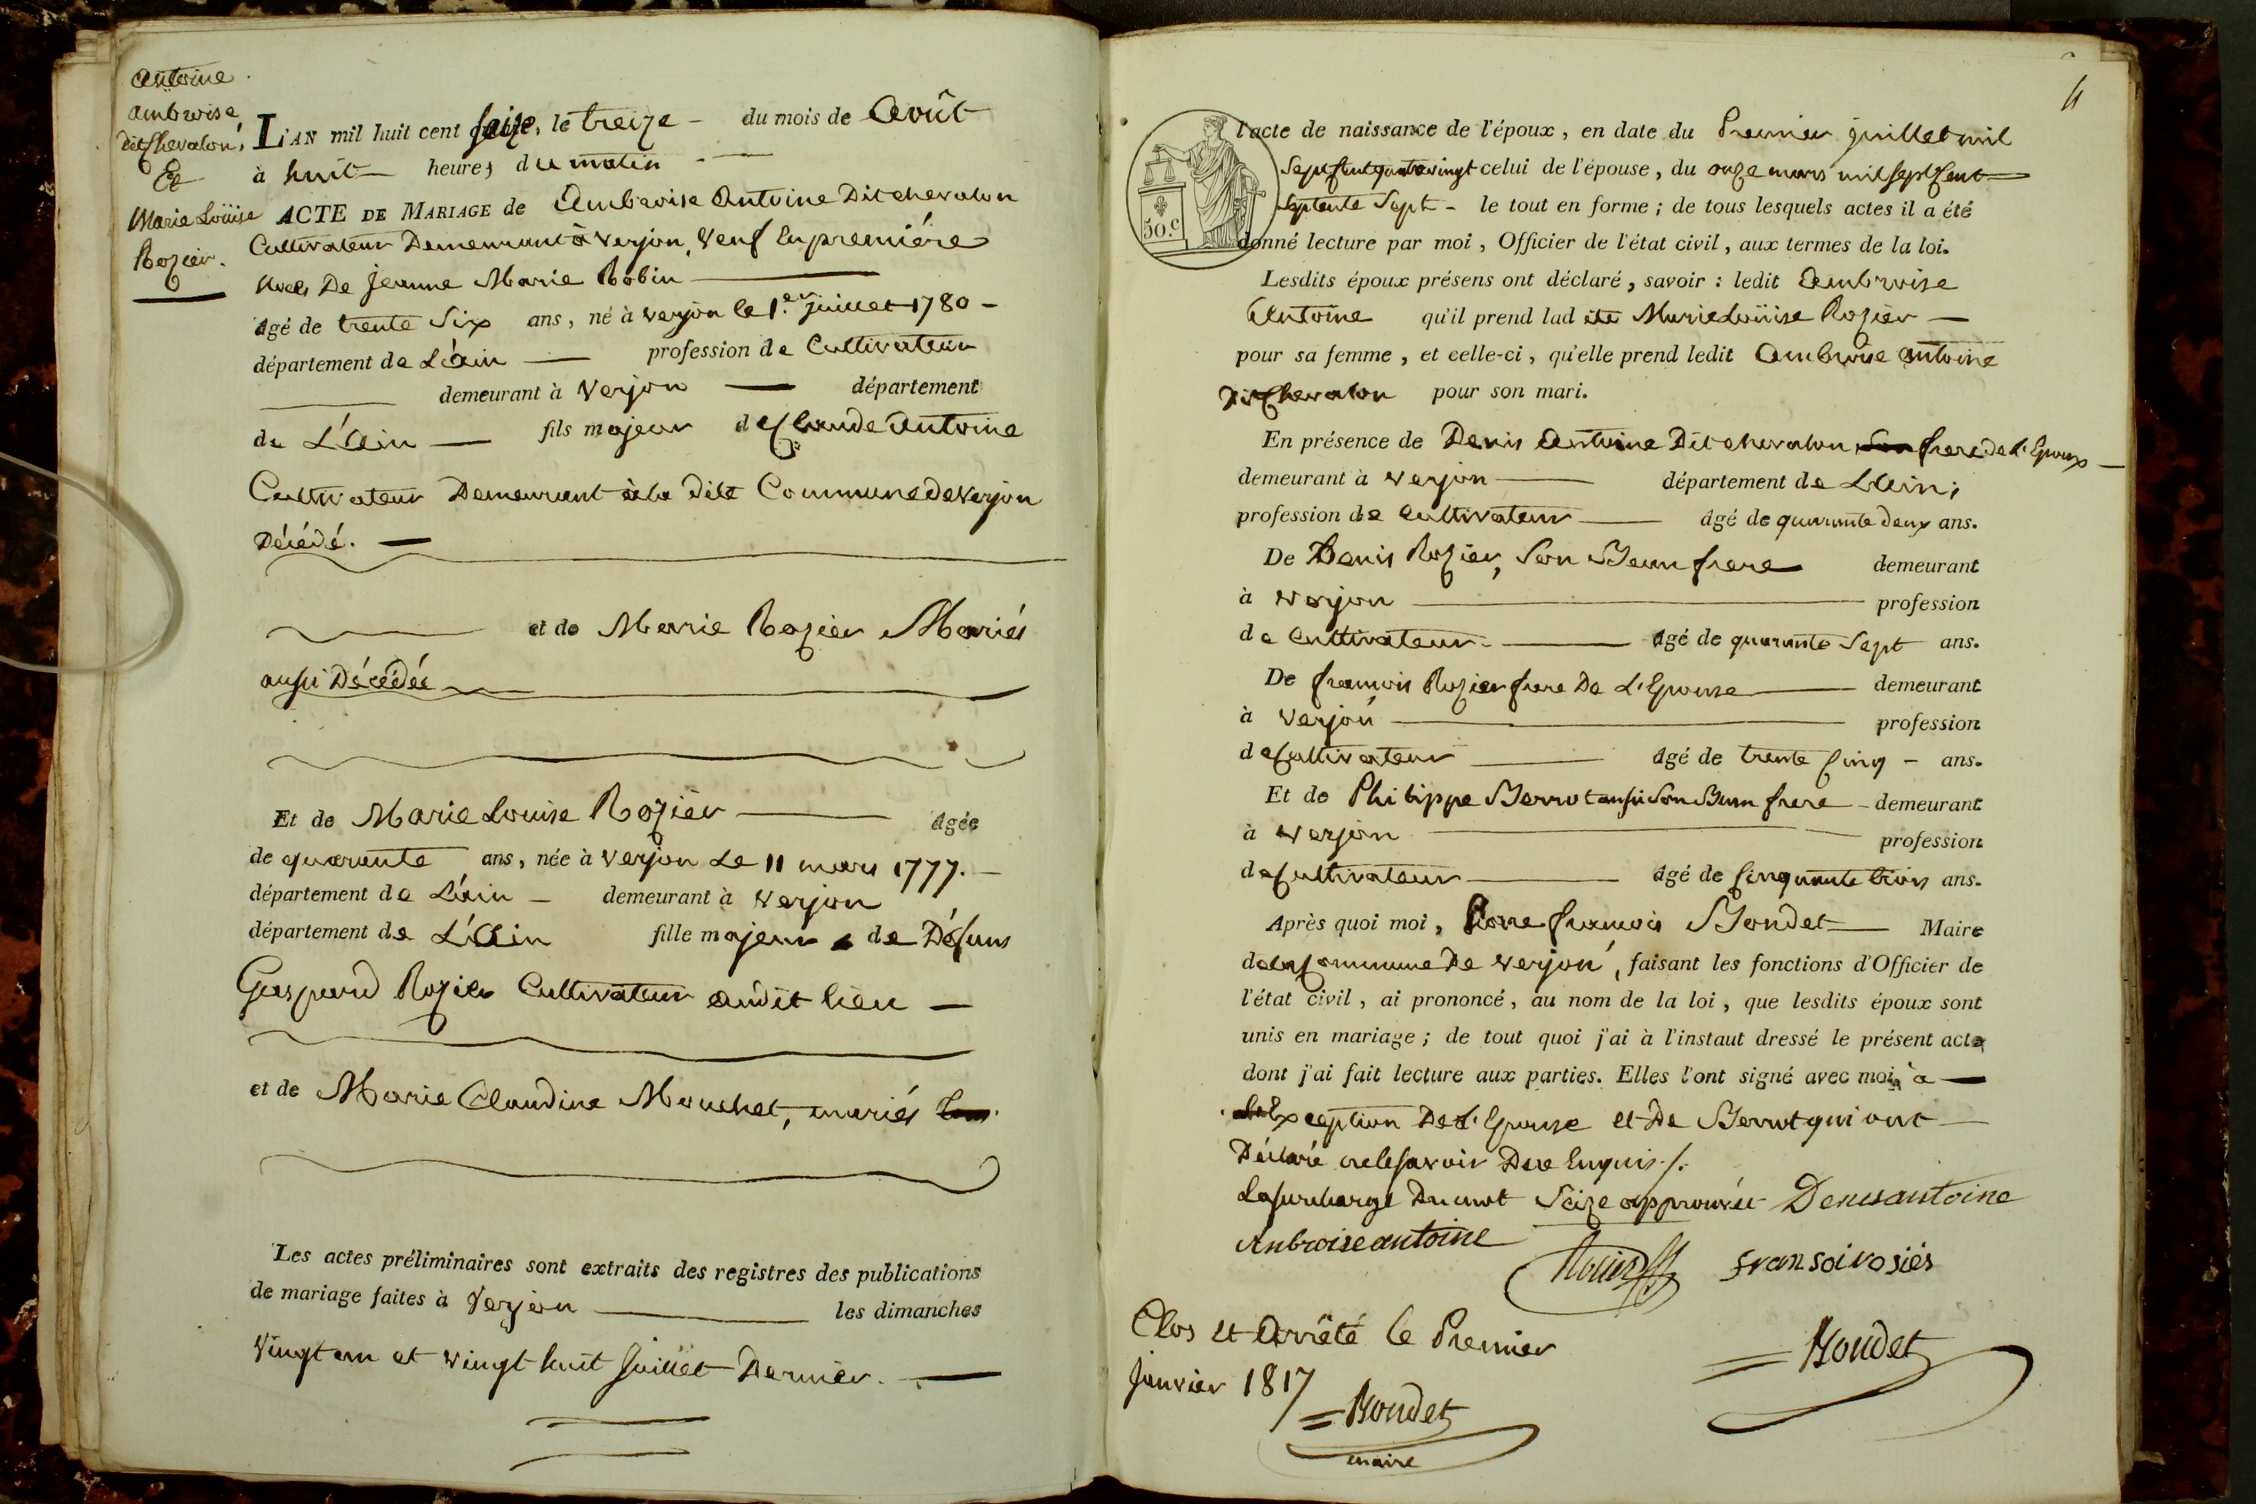 Antoine
Ambroise
dit Chevalon,
Et
Marie Loüise
Rozier.
L'AN mil huit cent seize, le treize - du mois de Août
à huit heures du matin
ACTE DE MARIAGE de Ambroise Antoine Dit chevalon
Cultivateur Demeurant à Verjon, Veuf En première
Noces De Jeanne Marie Robin
âgé de trente Six ans, né à Verjon le 1.er juillet 1780 -
département de L'ain profession de Cultivateur
demeurant à Verjon département
de L'Ain fils majeur de Claude Antoine
Cultivateur Demeurant à la dite Commune de Verjon
Décédé.
et de Marie Rozier Mariés
aussi Décédée
Et de Marie Louise Rozier âgée
de quarante ans, née à Verjon Le 11 mars 1777.
département de L'ain - demeurant à Verjon
département de L'Ain fille majeure de Défuns
Gaspard Rozier Cultivateur audit lieu
et de Marie Claudine Mouchet, mariés
Les actes préliminaires sont extraits des registres des publications
de mariage faites à Verjon les dimanches
Vingt un et vingt huit Juillet Dernier.
4
50.c
l'acte de naissance de l'époux, en date du Premier juillet mil
Sept Cent quatre vingt celui de l'épouse, du onze mars mil sept Cent
Septente Sept - le tout en forme; de tous lesquels actes il a été
donné lecture par moi, Officier de l'état civil, aux termes de la loi.
Lesdits époux présens ont déclaré, savoir : ledit Ambroise
Antoine qu'il prend ladite Marie Loüise Rozier
pour sa femme, et celle-ci, qu'elle prend ledit Ambroise Antoine
Dit Chevalon pour son mari.
En présence de Denis Antoine Dit chevalon frere De L'Epoux
demeurant à Verjon département de L'Ain;
profession de Cultivateur âgé de quarante deux ans.
De Denis Rozier, Son Beau frere demeurant
à Verjon profession
de Cultivateur. âgé de quarante Sept ans.
De françois Rozier frere De L'Epouse demeurant
à Verjon profession
de Cultivateur âgé de trente Cinq - ans.
Et de Philippe Berrot aussi Son Beau frere - demeurant
à Verjon profession
de Cultivateur âgé de Cinquante trois ans.
Après quoi moi, Pierre françois Bondet Maire
de la Commune De Verjon, faisant les fonctions d'Officier de
l'état civil, ai prononcé, au nom de la loi, que lesdits époux sont
unis en mariage; de tout quoi j'ai à l'instant dressé le présent acte
dont j'ai fait lecture aux parties. Elles l'ont signé avec moi, a
L'Exception De L'Epouse et De Berrot qui ont
Déclaré ne le savoir De ce Enquis./.
La surcharge Du mot Seize approuvée Denis antoine
Anbroise antoine
fransoi rosiés
Clos et Arrêté le Premier
Janvier 1817
Bondet
Bondet
maire